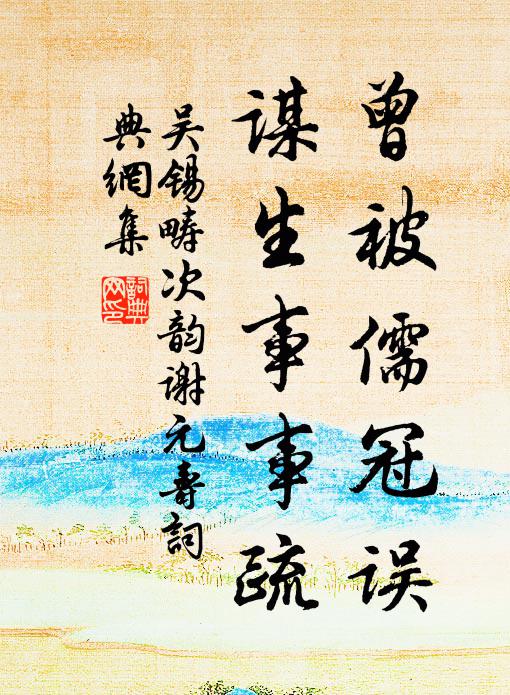 曾被儒冠误
谋生事事疏
吴锡畴次韵谢元寿词
典網集
詞典
网印